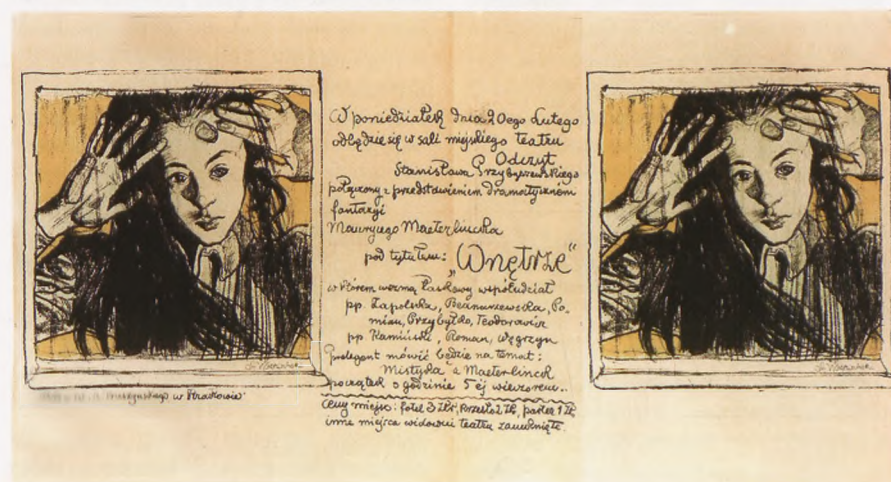 W poniedziałek dnia 20ego Lutego
odbędzie się w sali miejskiego teatru
Odczyt
Stanisława Przybyszewskiego
połączony z przedstawieniem dramatycznem
fantazyi
Maurycego Maeterlincka
pod tytułem: „Wnętrze"
w którem wezmą łaskawy współudział
pp. Zapolska, Bednarzewska, Po-
mian, Przybyłko, Teodorowicz
pp. Kamiński, Roman, Węgrzyn
Prelegent mówić będzie na temat:
Mistyka a Maeterlinck
początek o godzinie 5ej wieczorem.
Ceny miejsc: fotel 3 Złr, krzesło 2 Zł, parter 1 Zł
inne miejsca widowni teatru zamknięte.
w Krakowie